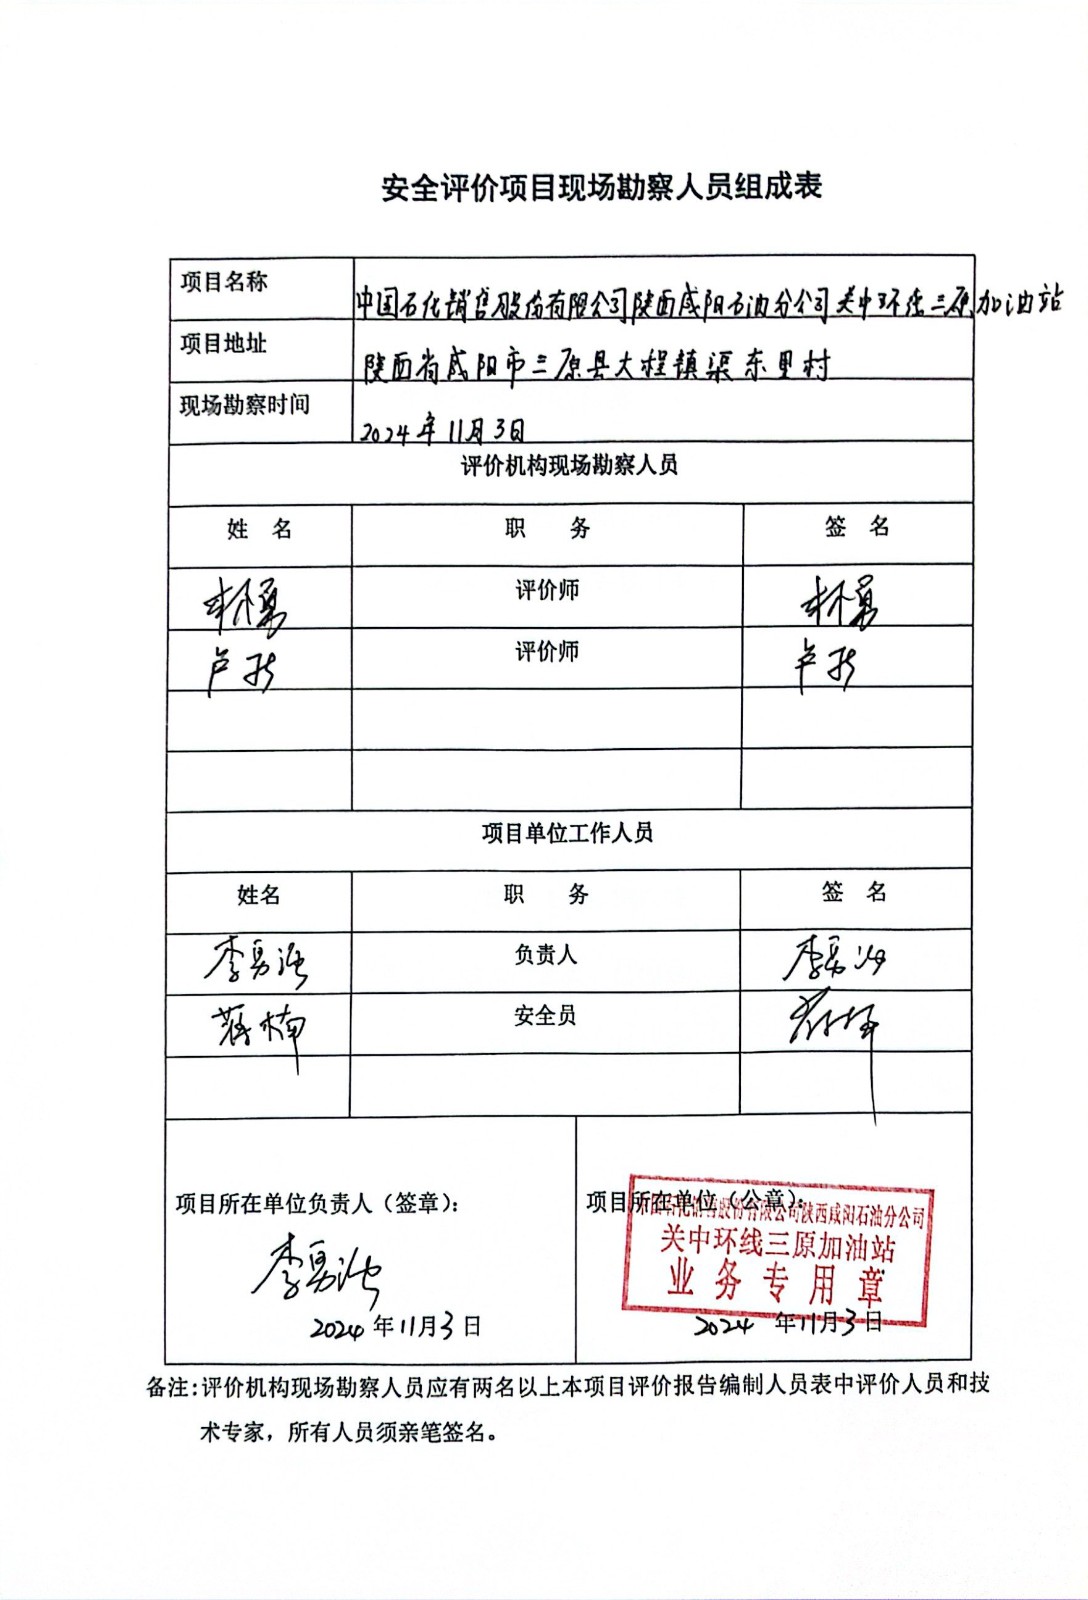 安全评价项目现场勘察人员组成表
项目名称 中国石化销售股份有限公司陕西咸阳石油分公司关中环线三原加油站
项目地址 陕西省咸阳市三原县大程镇渠东里村
现场勘察时间 2024年11月3日
评价机构现场勘察人员
姓 名 职 务 签 名
评价师
卢 评价师 卢
项目单位工作人员
姓名 职 务 签 名
李勇强 负责人 李勇强
蒋楠 安全员
项目所在单位负责人（签章）： 项目所在单位（公章）：
中国石化销售股份有限公司陕西咸阳石油分公司
关中环线三原加油站
李勇强 业务专用章
2024年11月3日 2024年11月3日
备注：评价机构现场勘察人员应有两名以上本项目评价报告编制人员表中评价人员和技
术专家，所有人员须亲笔签名。